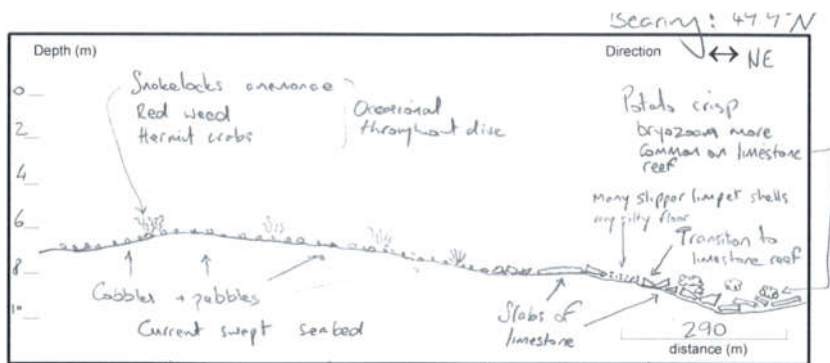 Bearing: 49.4°N
Depth (m)
Direction
NE
0
2
4
6
8
10
Snakelocks anemone
Red weed
Hermit crabs
Occasional
throughout dive
Potato crisp
bryozoan more
common on limestone
reef
Many slipper limpet shells
silty floor
Transition to
limestone reef
Cobbles + pebbles
Current swept seabed
Slabs of
limestone
290
distance (m)